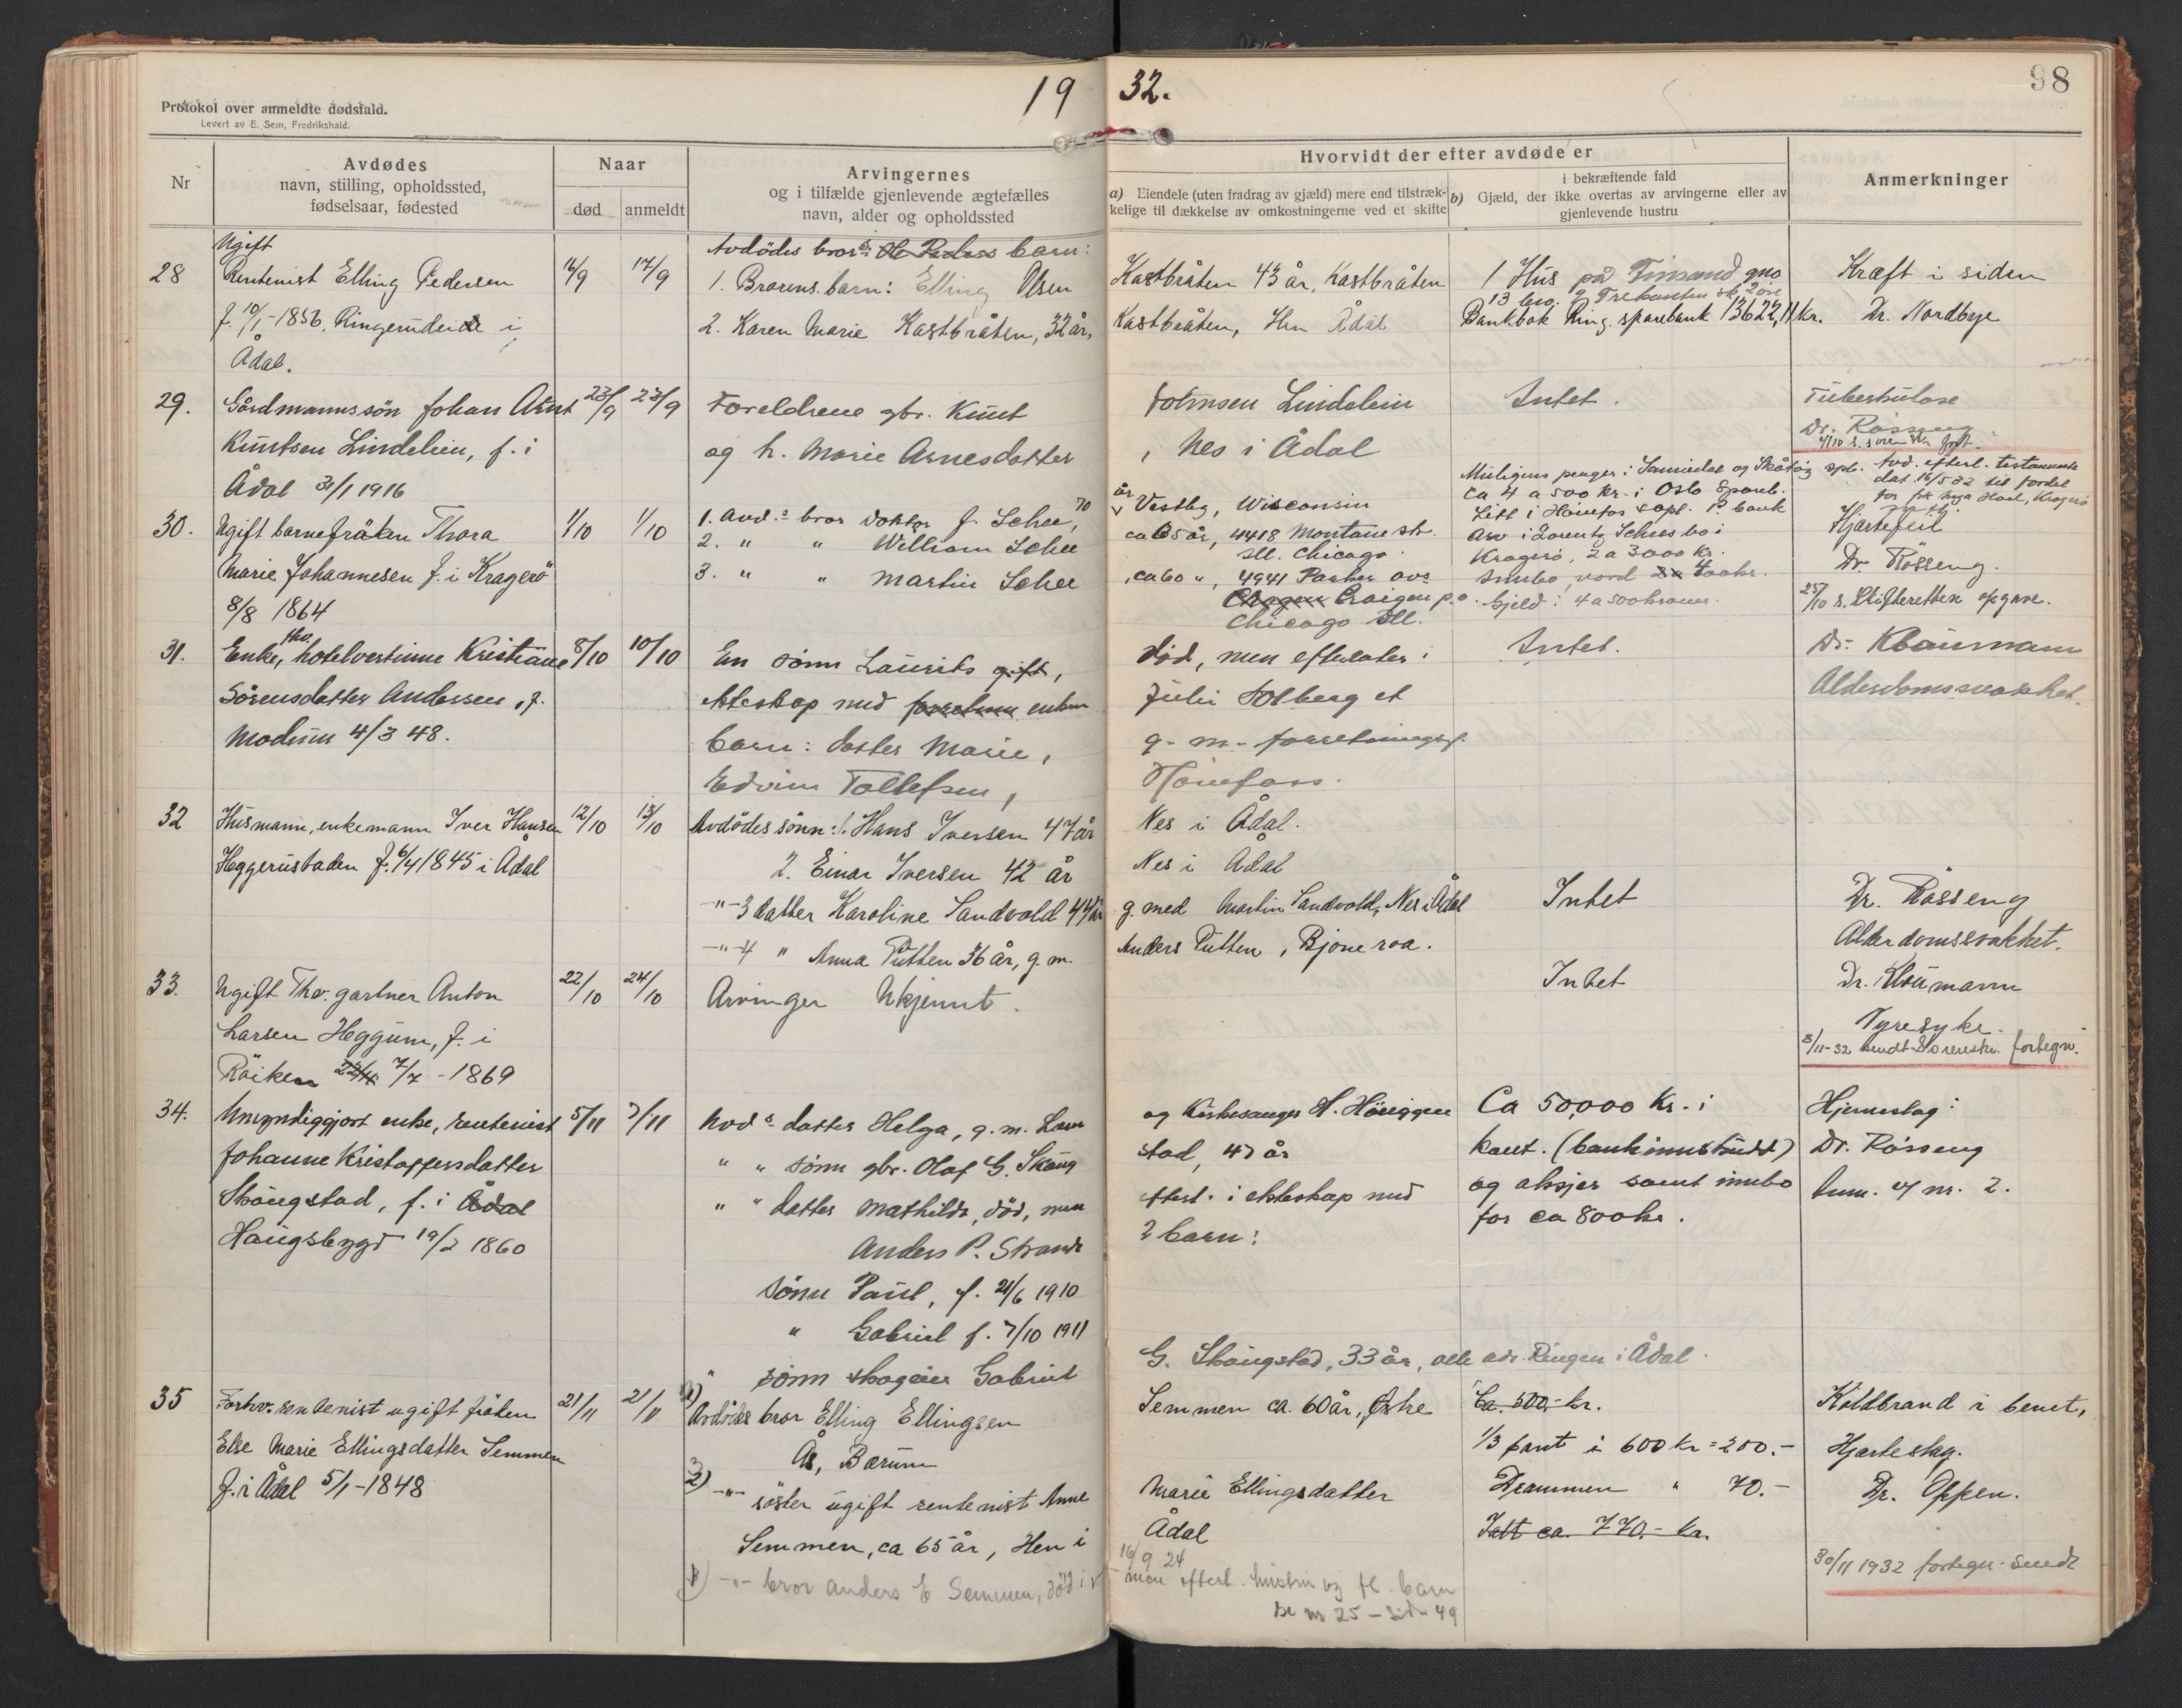 19 32.
98
Protokol over anmeldte dødsfald.
Levert av E. Sem, Fredrikshald.
Nr
Avdødes
navn, stilling, opholdssted,
fødselsaar, fødested
Naar
død
anmeldt
Arvingernes
og i tilfælde gjenlevende ægtefælles
navn, alder og opholdssted
Hvorvidt der efter avdøde er
a) Eiendele (uten fradrag av gjæld) mere end tilstræk-
kelige til dækkelse av omkostningerne ved et skifte
i bekræftende fald
b) Gjæld, der ikke overtas av arvingerne eller av
gjenlevende hustru
Anmerkninger
Ugift
28 Rentenist Elling Pedersen 16/9 17/9
f. 10/1-1856, Ringerudeie i
Ådal.
Avdödes brors barn:
1. Brorens barn: Elling Olsen Kastbråten 43 år, Kastbråten
2. Karen Marie Kastbråten, 32 år, Kastbråten, Hen Ådal
1 Hus på Finsand gno
Bankbok Ring. sparebank 13622,11 kr.
Kræft i siden
Dr. Nordbye
29. Gårdmannssön Johan Arnt 23/9 23/9
Knutsen Lindelien, f. i
Ådal 31/1 1916
Foreldrene gbr. Knut Johnsen Lindelien
og h. Marie Arnesdatter, Nes i Ådal
Intet.
Tuberkulose
Dr. Rösseng
30. Ugift barnefröken Thora 1/10 1/10
Marie Johannesen f. i Kragerö
8/8 1864
1. Avd.s bror doktor J. Schee, 70 år, Vestby, Wisconsin
2. " " William Schee ca 65 år, 4418 Montane str.
Ill. Chicago.
3. " " Martin Schee, ca 60 ", 4941 Parker ave
Craigen p.o.
Chicago Ill.
Muligens penger i Sannidal og Skåtöy spb.
ca 4 a 500 kr. i Oslo Spareb.
Litt i Hönefos & opl. P. bank
Arv i Lorentz Schees bo i
Kragerö, 2 a 3000 kr.
Innbo, verd 400 kr.
Gjeld: 4 a 500 kroner.
Avd. efterl. testamente
dat. 16/5 32 til fordel
Hjertefeil
Dr. Rösseng.
25/10 s. Skifteretten opgave.
31. Enke, fhv. hotelvertinne Kristiane 8/10 10/10
Sörensdatter Andersen, f.
Modum 4/3 48.
En sönn Laurits gift, död, men efterlater i
ekteskap med enken Julie Solberg et
barn: datter Marie, g. m. forretningsf.
Edvin Tollefsen, Hönefoss.
Intet.
Dr. Klaumann
Alderdomssvakhet.
32 Husmann, enkemann Iver Hansen 12/10 13/10
Heggerustaden f. 6/4 1845 i Ådal
Avdödes sönn: 1. Hans Iversen 47 år Nes i Ådal.
2. Einar Iversen 42 år Nes i Ådal
-"- 3 datter Karoline Sandvold 44 år g. med Martin Sandvold, Nes i Ådal
-"- 4 " Anna Putten 36 år, g. m. Anders Putten, Bjoneroa.
Intet
Dr. Rösseng
Alderdomssvakhet.
33. Ugift fhv. gartner Anton 22/10 24/10
Larsen Heggum, f. i
Röiken 22/10 7/7-1869
Arvinger Ukjennt.
Intet
Dr. Klaumann
Nyresyke.
8/11-32 sendt Sorenskr. fortegn.
34. Umyndiggjort enke, rentenist 5/11 7/11
Johanne Kristoffersdatter
Skougstad, f. i Ådal
Haugsbygd 19/2 1860
Avd.s datter Helga, g. m. og kirkesanger H. Hönggen
" " sönn gbr. Olaf G. Skaugstad, 47 år
" " datter Mathilde, död, men efterl. i ekteskap med
Anders P. Strande 2 barn:
sönn Paul, f. 21/6 1910
" Gabriel f. 7/10 1911
" sönn skogeier Gabriel G. Skougstad, 33 år, alle adr. Ringen i Ådal.
Ca 50,000 Kr. i
kont. (bankinnskudd)
og aksjer samt innbo
for ca 800 kr.
Hjerneslag.
Dr. Rösseng
35 Forhv. rentenist ugift fröken 21/11 21/11
Else Marie Ellingsdatter Semmen
f. i Ådal 5/1-1848
1) Avdödes bror Elling Ellingsen Semmen ca. 60 år,
Ås, Bærum
2) -"- söster ugift rentenist Anne Marie Ellingsdatter
Semmen, ca 65 år, Hen i Ådal
3) -"- bror Anders E Semmen, död 16/9 24
men efterl. hustru og fl. barn
se nr 25 - side 49
Ca. 500,- kr.
1/3 part i 600 kr = 200.-
Drammen " 70.-
Ialt ca. 770.- kr.
Koldbrand i benet,
Hjerteslag.
Dr. Oppen.
30/11 1932 fortegn. sendt